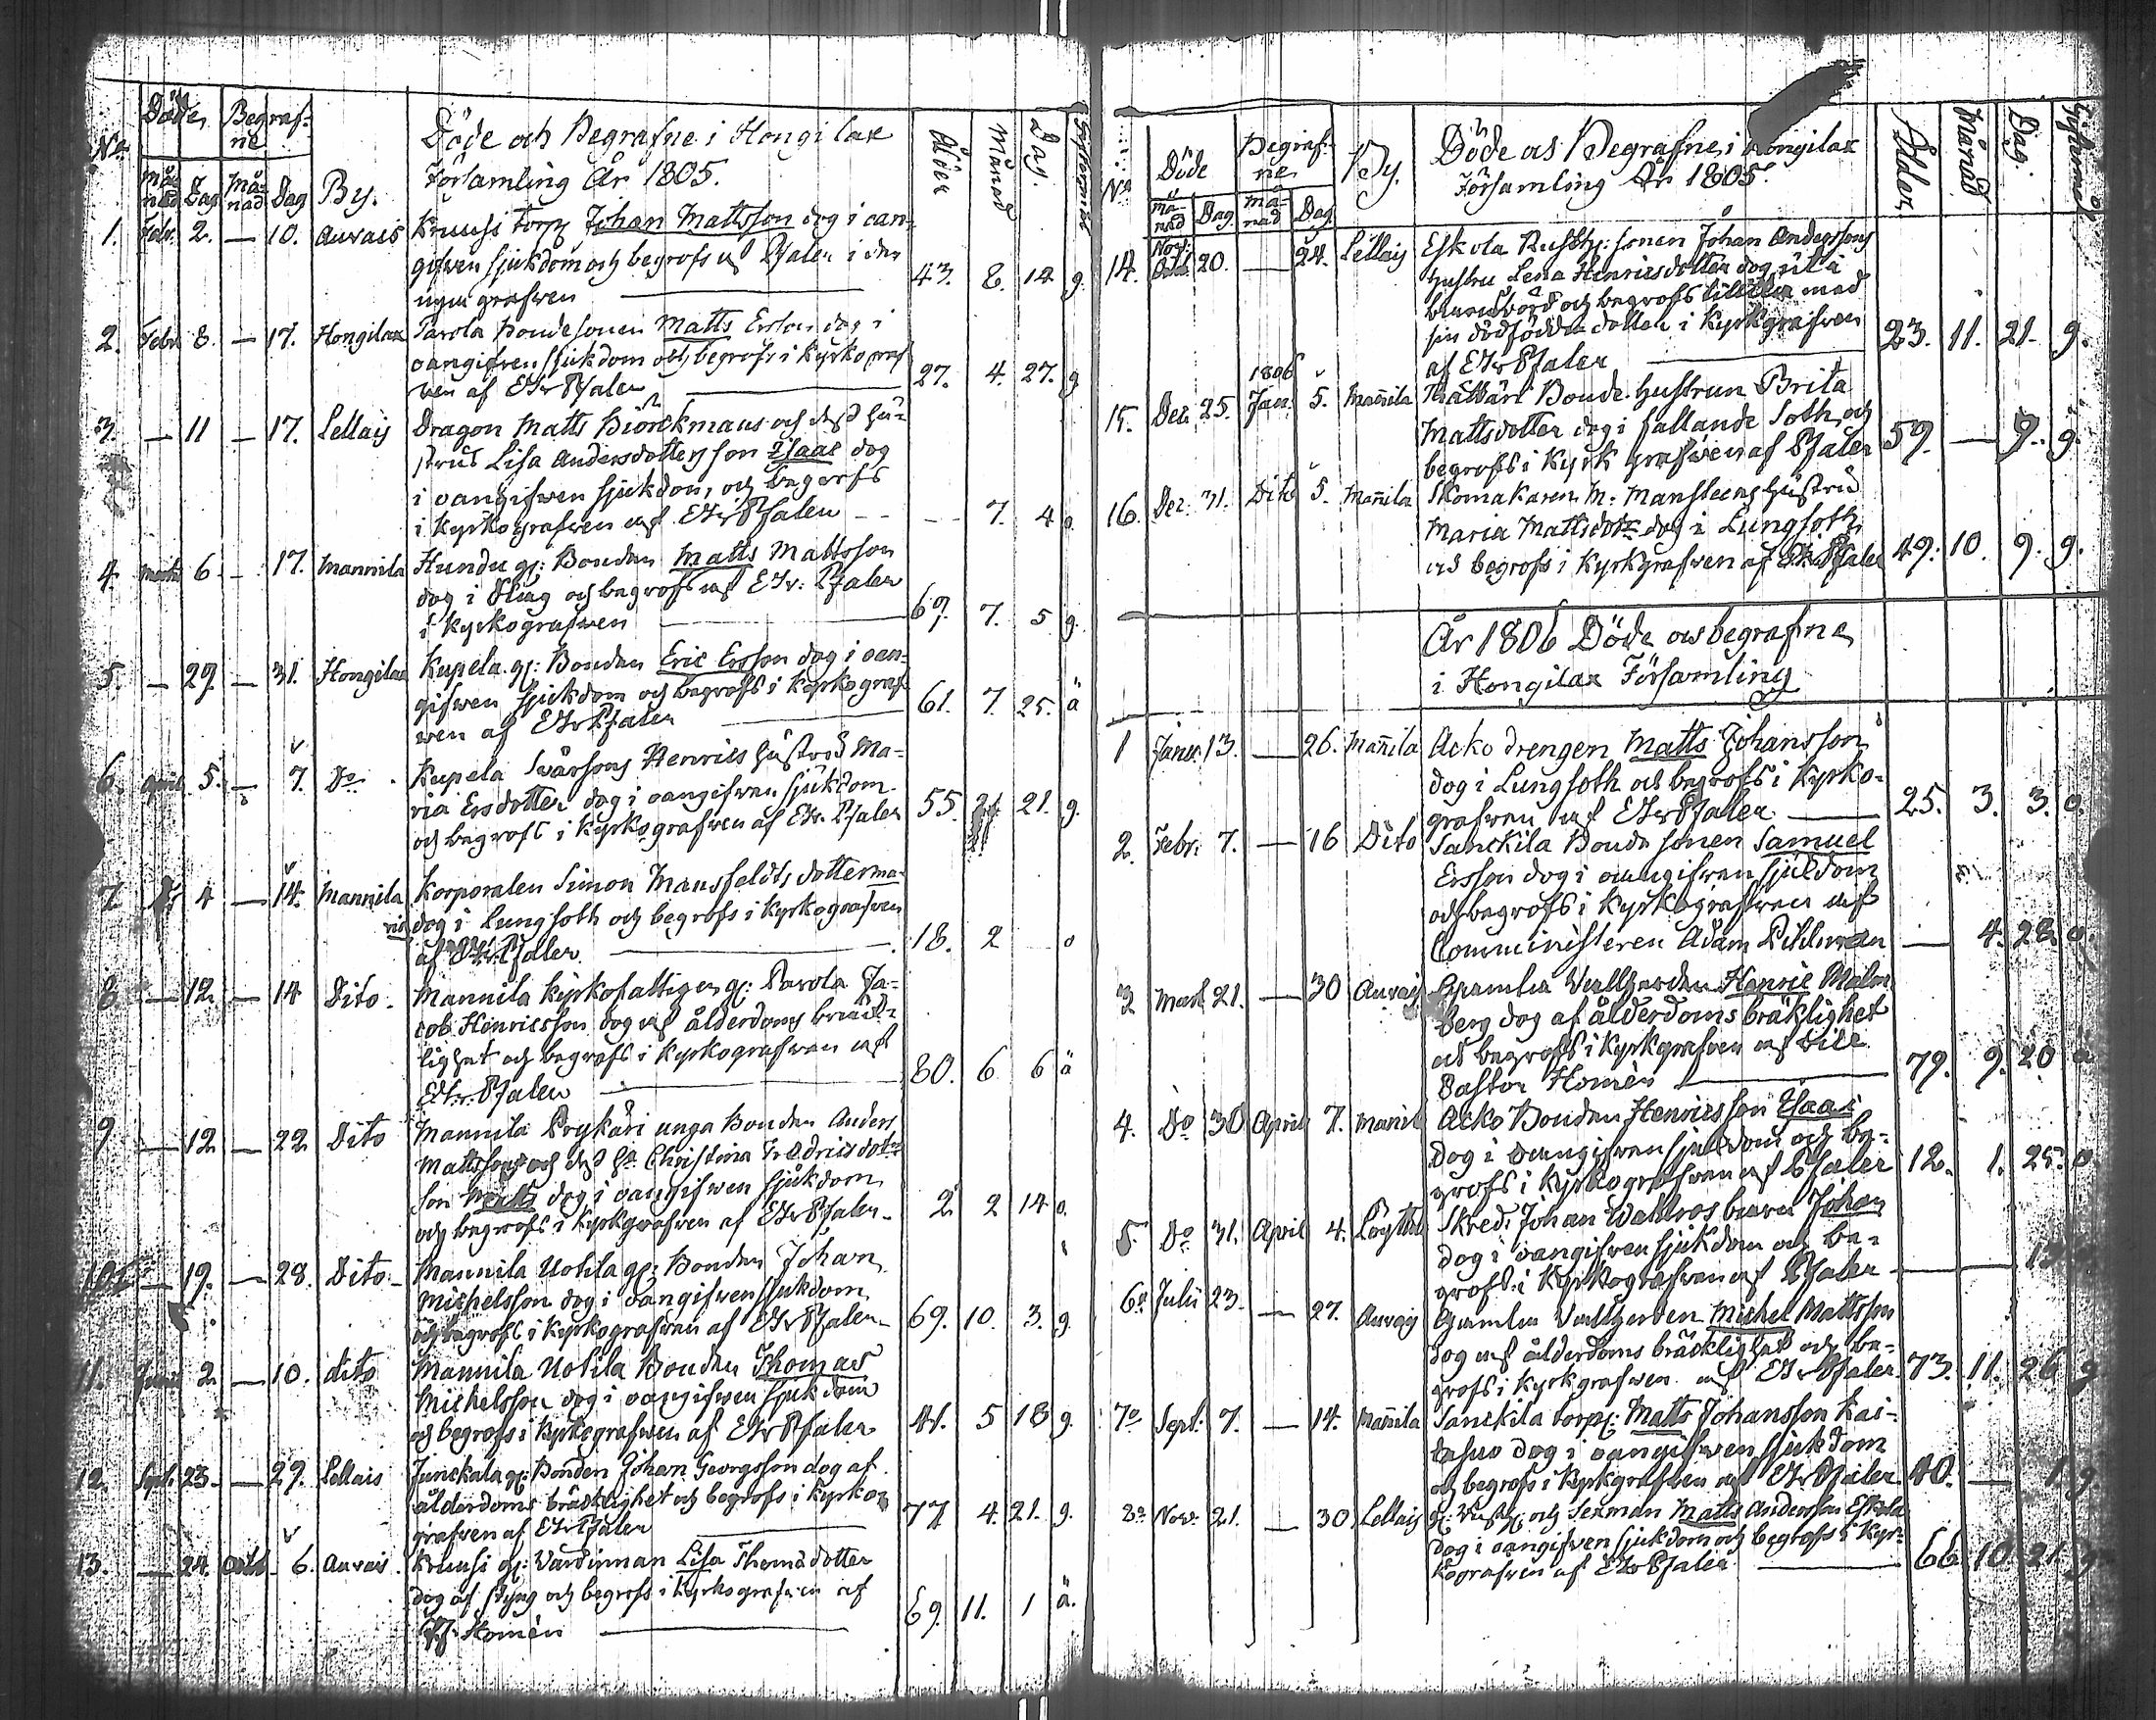 Döde och Begrafne i Hongilax
Församling År 1805.
No Döde Begraf-
ne
Må-
nad Dag Må-
nad Dag By. Ålder Månad Dag.
1. Febr. 2. — 10. Auvais Kruusi torp Johan Mattsson dog i oan-
gifven sjukdom och begrofs af Pfaler i den
nya grafwen 43. 8. 14 g.
2. Febr. 8. — 17. Hongilax Parola Bondesonen Matts Ersson dog i
oangifven sjukdom och begrofs i Kyrkograf
ven af Ehr Pfaler 27. 4. 27. g
3. — 11 — 17. Lellais Dragon Matts Biörckmans och dess Hu-
strus Lisa Andersdotters son Isaac dog
i oangifwen sjukdom, och begrofs
i Kyrkografwen af Ehr Pfaler 7. 4 o.
4. Martii 6. — 17. Mannila Hundu gl: Bonden Matts Mattsson
dog i Håg och begrofs af Ehr. Pfaler
i Kyrkografwen 69. 7. 5 g.
5. — 29 — 31. Hongilax Kupela gl: Bonden Eric Ersson dog i oan-
gifwen sjukdom och begrofs i Kyrkograf-
wen af Ehr Pfaler 61. 7. 25. ä
6. April 5. — 7. Do. Kupela Svärsons Henrics Hustru Ma-
ria Ersdotter dog i oangifwen sjukdom
och begrofs i Kyrkografwen af Ehr. Pfaler 55. 21. g.
7 4 — 14. Mannila Korporalen Simon Mansfeldts dotter Ma-
ria dog i Lungsoth och begrofs i Kyrkografwen
af Ehr. Pfaler 18. 2 o
8 — 12 — 14 Dito. Mannila Kyrkofattigen gl: Parola Ja-
cob Henricsson dog af ålderdoms bräck-
lighet och begrofs i Kyrkografwen af
Ehr. Pfaler 80. 6 6 ä
9 — 12 — 22 Dito Mannila Prykäri unga Bonden Anders
Mattssons och dess Ha Christina Fredricsdotrs
son Matts dog i oangifwen sjukdom
och begrofs i Kyrkgrafwen af Ehr Pfaler 2 2 14 o.
10 — 19. — 28. Dito Mannila Uotila gl: Bonden Johan
Michelsson dog i oangifwen sjukdom
och begrofs i Kyrkografwen af Ehr Pfaler 69. 10. 3. g.
11. Junii 2 — 10. dito Mannila Uotila Bonden Thomas
Michelsson dog i oangifwen sjukdom
och begrofs i Kyrkografwen af Ehr Pfaler 41. 5 18 g.
12. Sept. 23. — 29. Lellais Junckala gl: Bonden Johan Georgsson dog af
ålderdoms bräcklighet och begrofs i Kyrko-
grafwen af Ehr Pfaler 77 4. 21. g.
13. — 24. Octob. 6. Auvais. Kruusi gl: Värdinnan Lisa Thomasdotter
dog af styng och begrofs i Kyrkografwen af
Homén 69. 11. 1 ä.
Döde och Begrafne i Hongilax
Församling År 1805.
No Döde Begraf-
ne By. Ålder Månad Dag.
Må-
nad Dag Må-
nad Dag
14. 20. — 24. Lellais Eskola Rusth: sonen Johan Anderssons
Hustru Lena Henricsdotter dog uti
barnsbörd och begrofs tillika med
sin dödfödda dotter i Kyrkgrafwen
af Ehr Pfaler 23. 11. 21. g.
1806
15. Dec. 25. Jan. 5. Mañila Bonde Hustrun Brita
Mattsdotter dog i fallande Soth och
begrofs i Kyrkgrafwen af Pfaler 59. — 9. g.
16. Dec. 31. Dito 5. Mañila Skomakaren M. Mansteens Hustru
Maria Mattsdotr dog i Lungsoth
och begrofs i Kyrkgrafwen af Ehr Pfaler 49. 10. 9. g.
År 1806 Döde och begrafne
i Hongilax Församling
1 Janu. 13. — 26. Mañila Acko drengen Matts Johansson
dog i Lungsoth och begrofs i Kyrko-
grafwen af Ehr Pfaler 25. 3. 3. o.
2. Febr. 7. — 16 Dito Sanckila Bonde sonen Samuel
Ersson dog i oangifwen sjukdom
och begrofs i Kyrkografwen af
Comministeren Adam Pihlman — 4. 28. o.
3 Mart 21. — 30 Auvais Gamla Henric Malm
berg dog af ålderdoms bräklighet
och begrofs i Kyrkgrafwen af Vice
Pastor Homén 79. 9. 20 ä
4. Do 30 April 7. Mañila Acko Bonden Henricsson Isaac
dog i oangifwen sjukdom och be-
grofs i Kyrkografwen af Pfaler 12. 1. 25. o
5. Do 31. April 4. Löytta Skred: Johan Wahlros barn Johan
dog i oangifwen sjukdom och be-
grofs i Kyrkografwen af Pfaler —
6. Julii 23. — 27. Auvais Gamla Michel Mattsson
dog af ålderdoms bräcklighet och be-
grofs i Kyrkgrafwen af Ehr Pfaler 73. 11. 26 g
7. Sept. 7. — 14. Mañila Sanckila torp: Matts Johansson Kai-
tasuo dog i oangifwen sjukdom
och begrofs i Kyrkgrafwen af Ehr Pfaler 40. — 1 g
8. Nov. 21. — 30. Lellais gl: Rusth: och Sexman Matts Andersson Eskola
dog i oangifwen sjukdom och begrofs i Kyr-
kografwen af Ehr Pfaler 66. 10 21 g